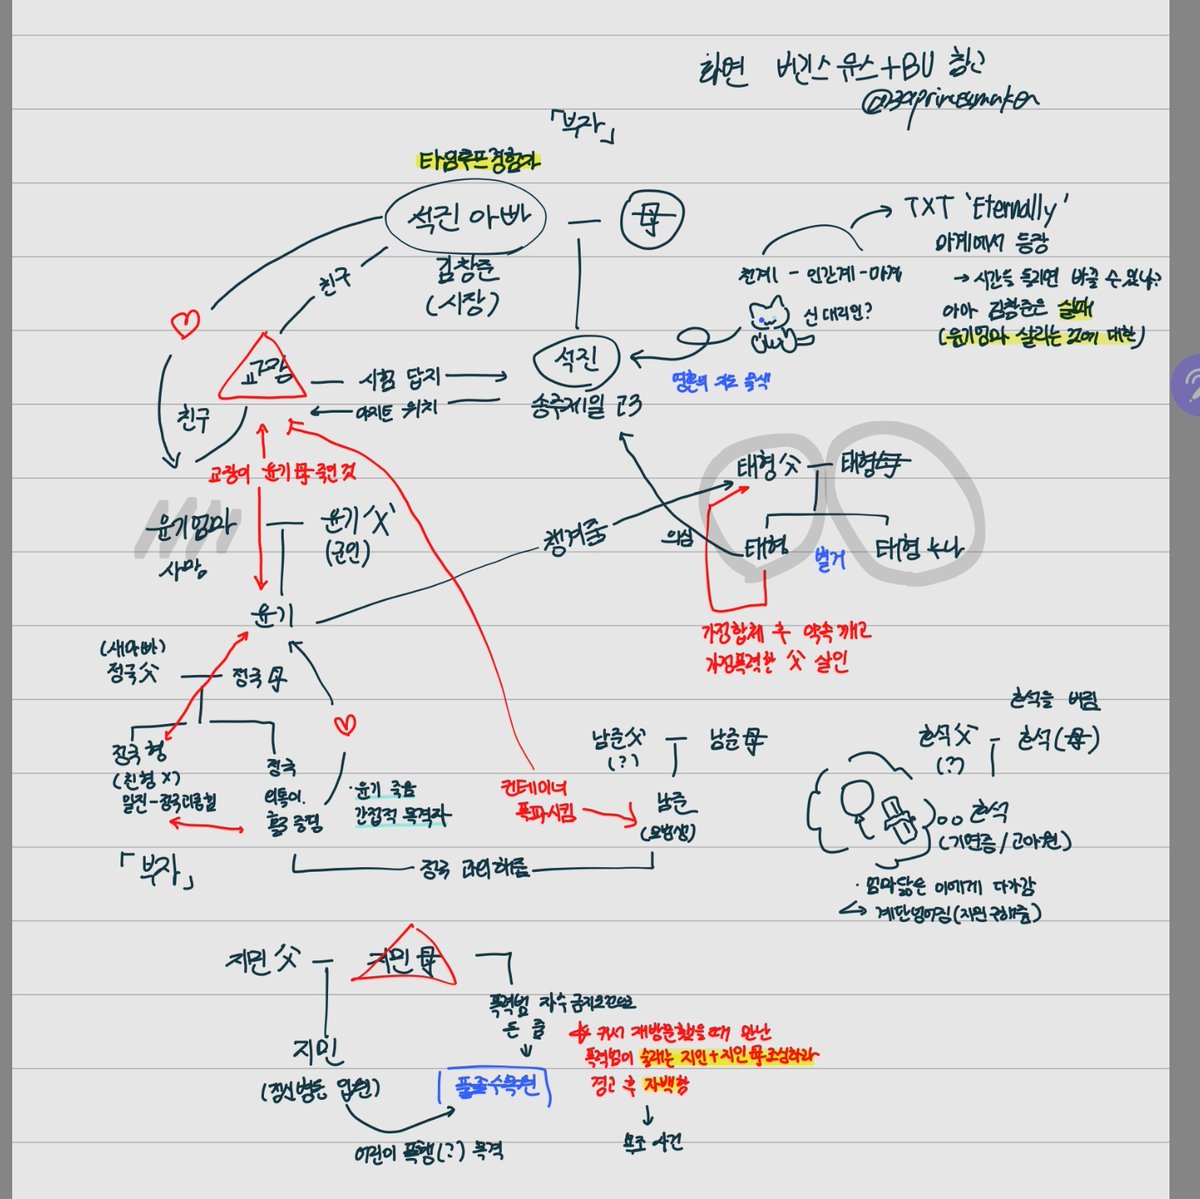 화연 버전스 유스+BU 참고
「부자」
타임루프경험자
석진 아빠
母
김창준
(시장)
친구
TXT 'Eternally'
마계에서 등장
천계 - 인간계 - 마계
→ 시간을 돌리면 바꿀 수 있나?
신 대리인?
아마 김창준은 실패
(윤기엄마 살리는 것에 대한)
교장
시험 답지
아지트 위치
석진
영혼의 지도 물색
송주제일 고3
친구
교장이 윤기 母 죽인 것
태형 父
태형 母
윤기엄마
사망
윤기 父
(군인)
챙겨줌
의심
태형
별거
태형 누나
윤기
가정합체 후 약속 깨고
가정폭력한 父 살인
(새아빠)
정국 父
정국 母
호석을 버림
정국 형
(친형 X)
일진-정국 괴롭힘
정국
외톨이.
윤기 죽음
간접적 목격자
컨테이너
폭파시킴
남준 父
(?)
남준 母
남준
(모범생)
호석 父
(?)
호석(母)
호석
(기면증/고아원)
「부자」
정국 과외해줌
· 엄마닮은 이에게 다가감
계단넘어짐(지민구해줌)
지민 父
지민 母
폭력범 자수 금지조건으로
돈 줌
지민
(정신병동 입원)
풀꽃수목원
커서 재방문했을때 만난
폭력범이 술래는 지민+지민母조심하라
경고 후 자백함
욕조 사건
어린이 폭행(?) 목격